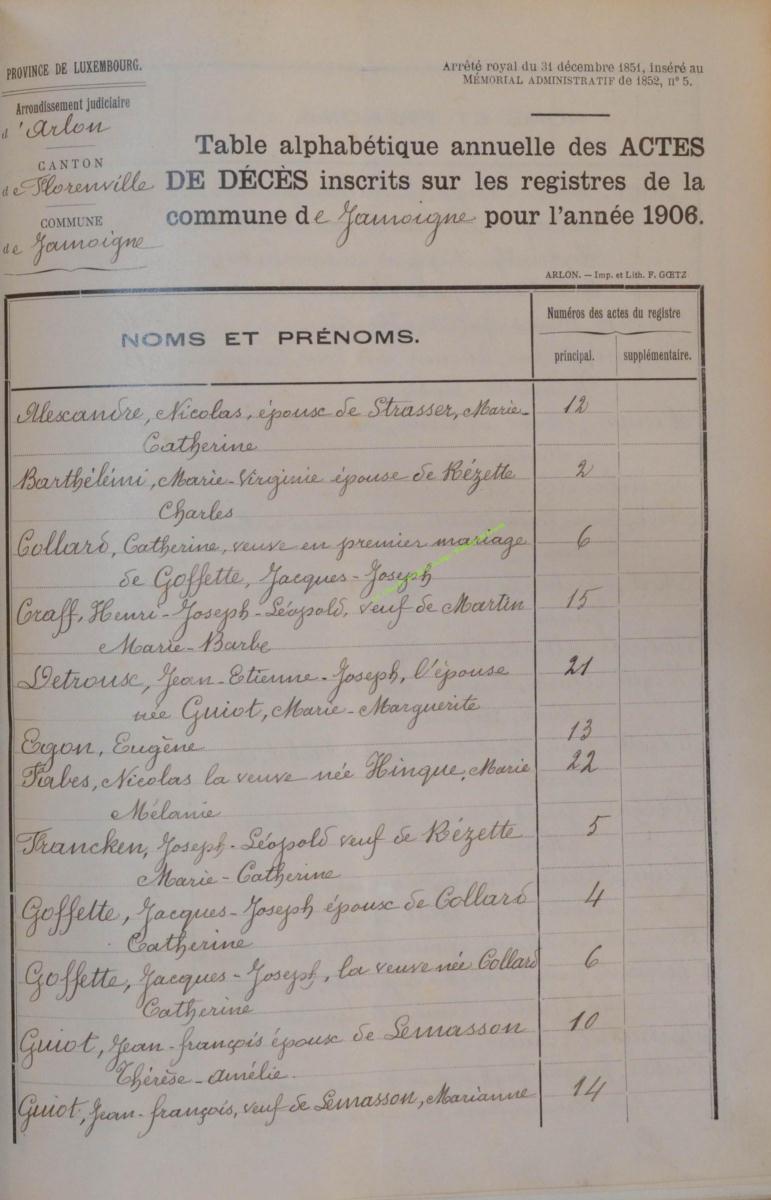 PROVINCE DE LUXEMBOURG.
Arrondissement judiciaire
d'Arlon
CANTON
de Florenville
COMMUNE
de Jamoigne
Arrêté royal du 31 décembre 1851, inséré au
MÉMORIAL ADMINISTRATIF de 1852, n° 5.
Table alphabétique annuelle des ACTES
DE DÉCÈS inscrits sur les registres de la
commune de Jamoigne pour l'année 1906.
ARLON. — Imp. et Lith. F. GŒTZ
NOMS ET PRÉNOMS.
Numéros des actes du registre
principal. supplémentaire.
Alexandre, Nicolas, époux de Strasser, Marie- 12
Catherine
Barthélémi, Marie-Virginie épouse de Rézette 2
Charles
Collard, Catherine, veuve en premier mariage 6
de Goffette, Jacques-Joseph
Craff, Henri-Joseph-Léopold, veuf de Martin 15
Marie-Barbe
Detroux, Jean-Etienne-Joseph, l'épouse 21
née Guiot, Marie-Marguerite
Egon, Eugène 13
Forbes, Nicolas la veuve née Hinque, Marie 22
Mélanie
Francken, Joseph-Léopold veuf de Rézette 5
Marie-Catherine
Goffette, Jacques-Joseph époux de Collard 4
Catherine
Goffette, Jacques-Joseph, la veuve née Collard 6
Catherine
Guiot, Jean-françois époux de Lemasson 10
Thérèse-Amélie.
Guiot, Jean-françois, veuf de Lemasson, Marianne 14